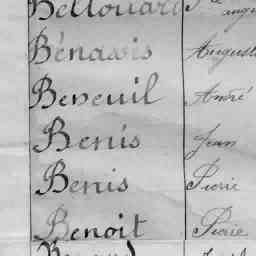 Bellouard
Bénavis Auguste
Beneuil André
Benis Jean
Benis Pierre
Benoit Pierre